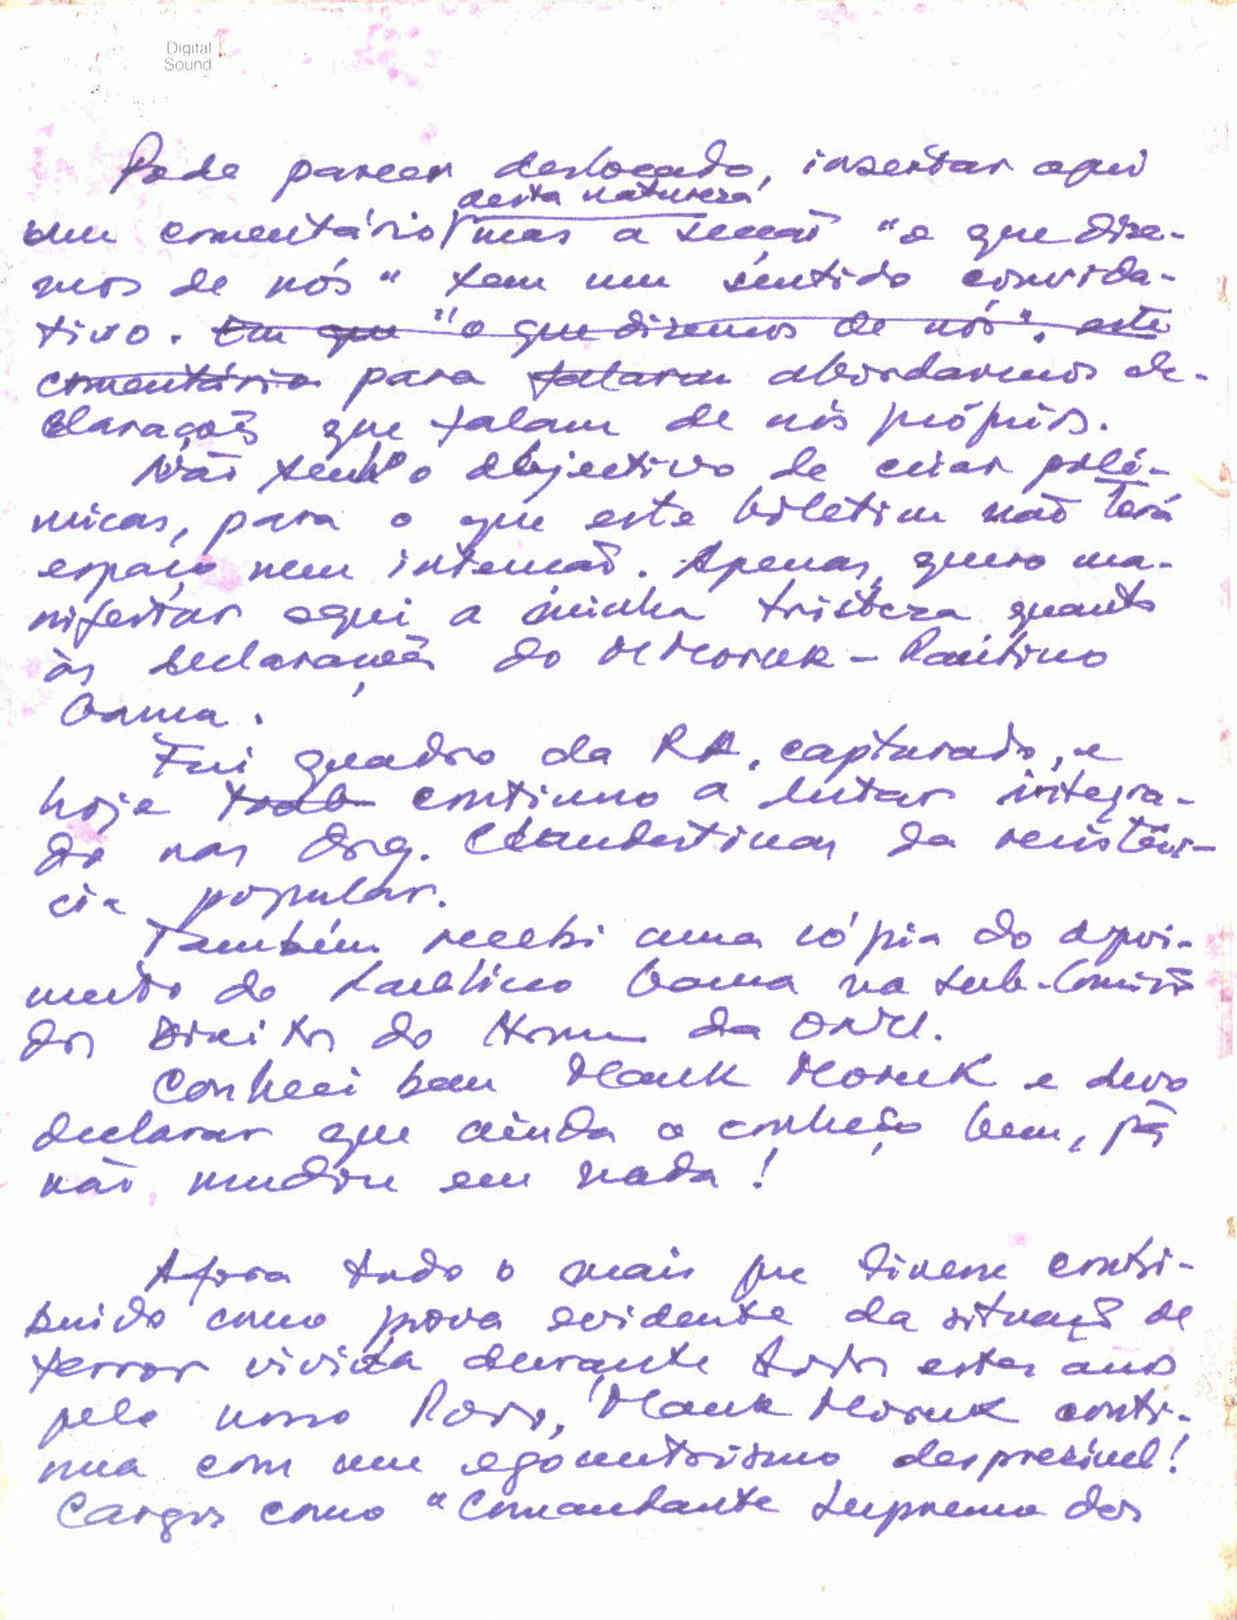 Digital
Sound
Pode parecer deslocado, insertar aqui
desta natureza
um comentário mas a secção "o que dize-
mos de nós" tem um sentido convida-
tivo. Em que "o que dizemos de nós". este
comentário para falarem abordarmos de-
clarações que falam de nós próprios.
Não tenho objectivo de criar polé-
micas, para o que este boletim não terá
espaço nem intenção. Apenas, quero ma-
nifestar aqui a minha tristeza quanto
às declarações do MMoruk - Paulino
Gama.
Fui quadro da RA, capturado, e
hoje trab continuo a lutar integra-
do nas Org. Clandestinas da resistên-
cia popular.
Também recebi uma cópia do depoi-
mento do Paulino Gama na Sub-Comissão
dos Direitos do Homem da ONU.
Conheci bem Mauk Moruk e devo
declarar que ainda o conheço bem, pois
não mudou em nada!
Afora tudo o mais que tivesse contri-
buido como prova evidente da situação de
terror vivida durante todos estes anos
pelo nosso Povo, Mauk Moruk conti-
nua com um egocentrismo despresível!
Cargos como "Comandante Supremo das